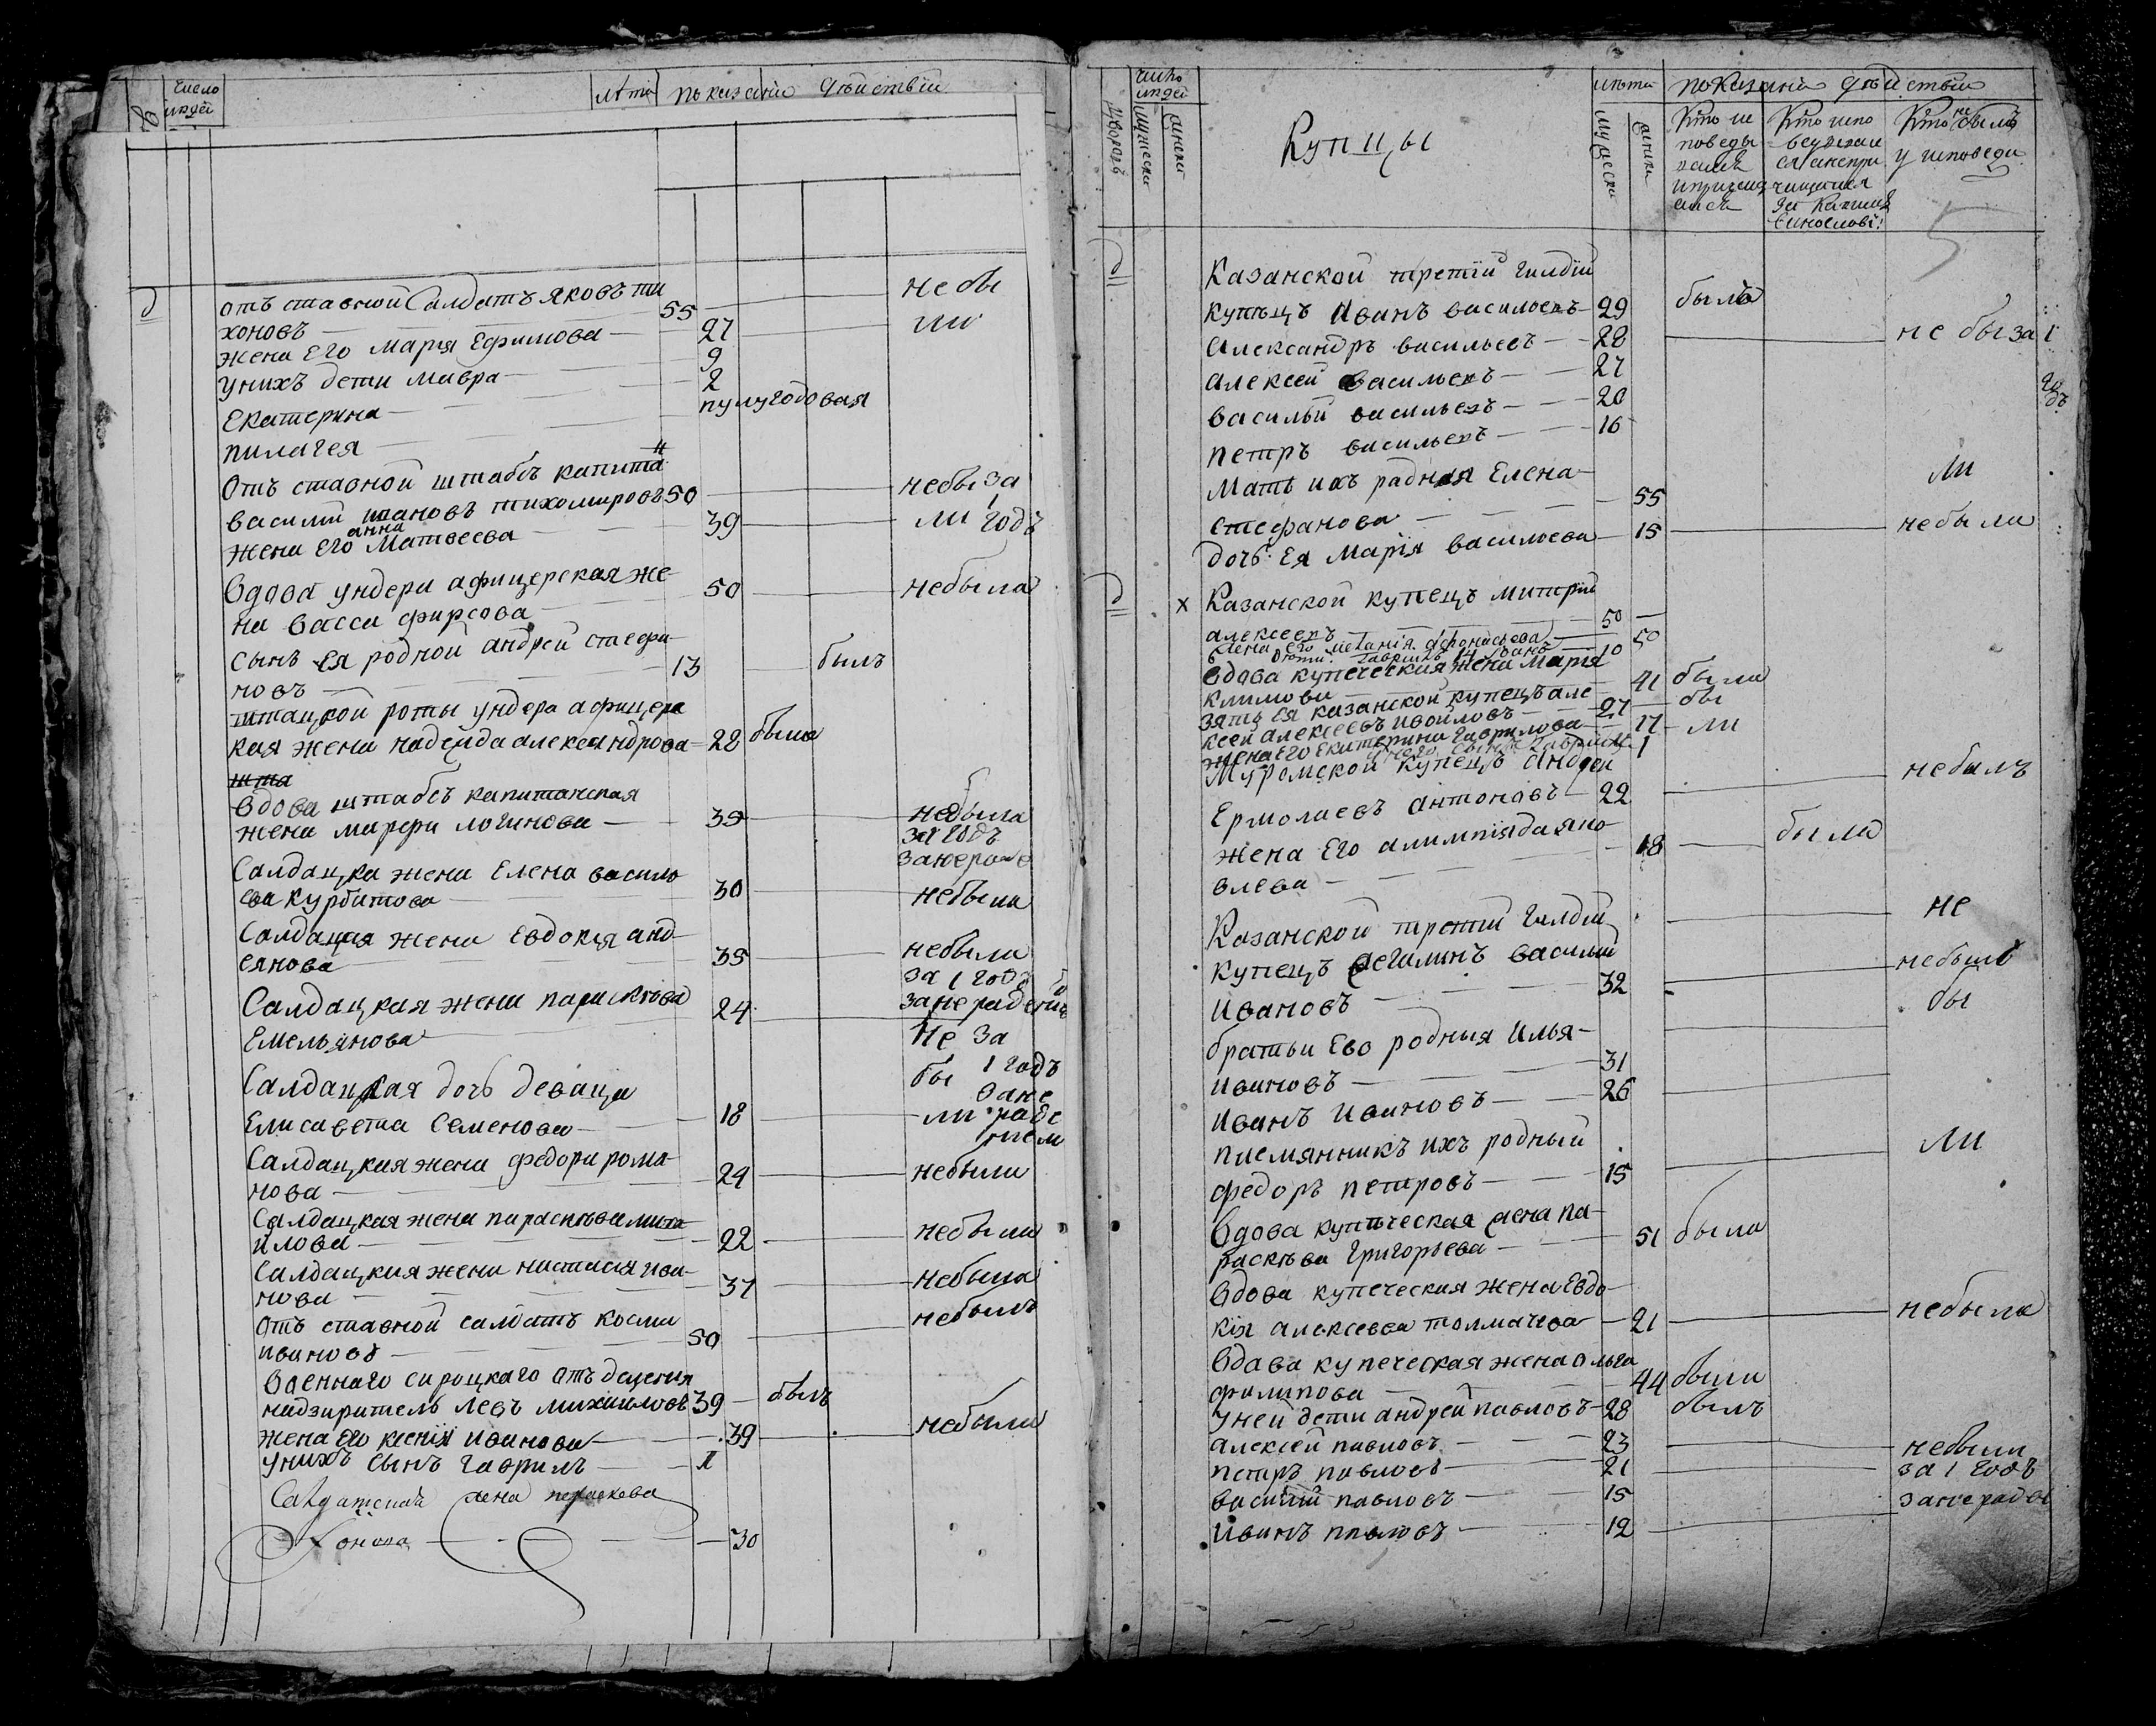 число
людей
лѣта показаніи дѣйствіи
отъ ставной Салдатъ яковъ ти
хоновъ 55 небы
жена Его марія Ефимова 27 ли
унихъ дети мавра 9
Екатерина 2
пилагея пулугодовая
Отъ ставной штабсъ капита
н
василий ивановъ тихомировъ 50 небы за
анна
жена Его Матвеева 39 ли 1 годъ
Вдова ундери афицерская же
на васса фирсова 50 небыла
Сынъ Ея родной андрей стефа
новъ 13 былъ
штацкой роты ундера афицерс
кая жена надежда александрова 22 была
шта
Вдова штабсъ капитанская
жена марфи логинова 39 небыла
за 1 годъ
Салдацка жена Елена василь
ева курбатова 30 небыла
Салдацкая жена Евдокия анд
еянова 39 небыла
за 1 годъ
Салдацкая жена параскова
занерадения
Емельянова 24 не за
бы 1 годъ
Салдацкая дочь деваца
зане
Елисавета Семенова 18 ли раде
нием
Салдацкая жена федора рома
нова 29 небыла
Салдацкая жена параскева миха
илова 22 небыла
Салдацкая жена настасья ива
нова 37 небыла
Отъ ставной салдатъ косма
ивановъ 50 небылъ
Военнаго сироцкаго отъ деления
надзиратель левъ михайловъ 39 былъ
жена Его ксения иванова 39 небыла
унихъ сынъ гаврилъ 1
Салдатская жена параскева
30
число
людей
лѣта показаніи дѣйствіи
дворовъ
мужеска
женска
Купцы
мужеска
женска
Кто ис
поведы
вался
и причащ
ался
Кто испо
ведывал
ся анепри
чащался
За каким
винословi:
Кто не былъ
у исповеди
Казанской третiй гилдiи
купецъ Иванъ василоевъ 29 былъ
Александръ васильевъ 28 не бы за 1
алексей васильевъ 27
годъ
василий васильевъ 20
петръ васильевъ 16
Мать ихъ радная Елена
ли
стефанова 55
дочь Ея Марiя василоева 15 небыли
x Казанской купецъ митрий
алексеевъ 50
жена его меланiя афонасьева 50
дети: Гаврилъ 14 Иванъ 10
Вдова купеческая жена Марiя
климова 41 была
зять Ея казанской купецъ але
ксей алексеевъ ивойловъ 27 бы
жена Его Екатерина гаврилова 17 ли
1
Муромской купецъ андрей
Ермолаевъ антоновъ 22 небылъ
жена Его алимпiяда яко
влева 18 была
Казанской третiй Гилдiи не
купецъ василий
Ивановъ 32 небылъ
братьи Ево родныя Илья
бы
ивановъ 31
Иванъ Ивановъ 26
племянникъ ихъ родный
федоръ петровъ 15 ли
Вдова купеческая жена па
раскѣва Григорьева 51 была
Вдова купеческая жена Евдо
кiя алексеева толмачева 21 небыла
Вдава купеческая жена олга
филипова 44 была
унеи дети андрей павловъ 28 былъ
алексей павловъ 23 небыли
петръ павловъ 21 за 1 годъ
василий павловъ 15 занерадѣ
Иванъ павловъ 12